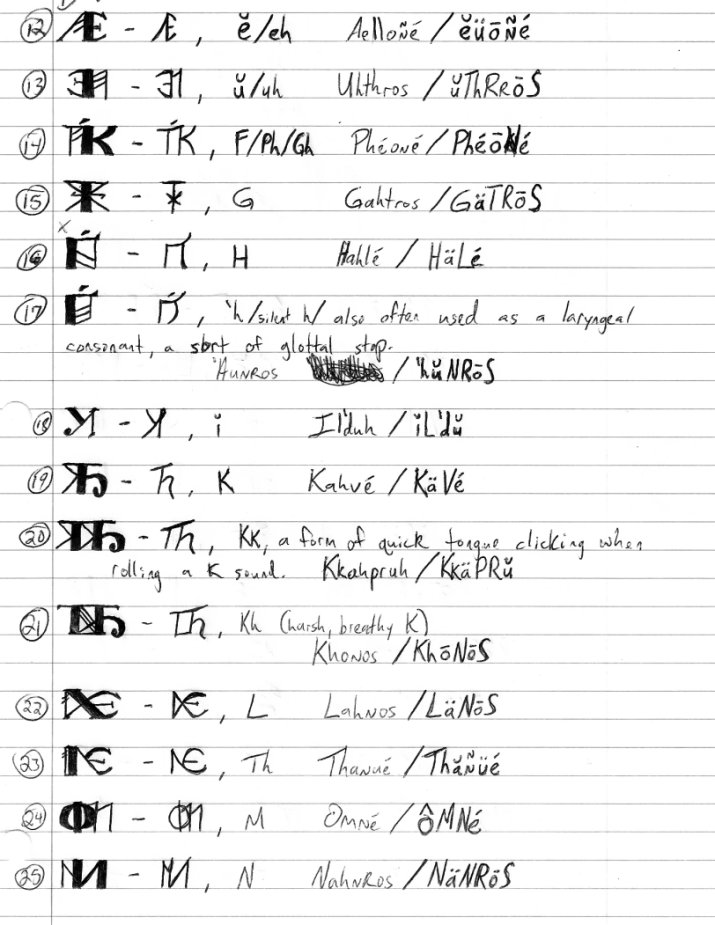 12 Æ - Æ, ĕ/eh Aelloñé / ĕüōñé
13 - , ŭ/uh Uhthros / ŭThRRōS
14 - ҐK, F/Ph/Gh Phéoné / PhéōNé
15 - , G Gahtros / GäTRōS
x
16 - , H Hahlé / HäLé
17 - , 'h/silent h/ also often used as a laryngeal
consonant, a sort of glottal stop.
'HUNROS / 'hŭNRōS
18 - , ĭ Il'duh / ĭL'dŭ
19 Ћ - Ћ, K Kahvé / KäVé
20 - , KK, a form of quick tongue clicking when
rolling a K sound. Kkahpruh / KKäPRŭ
21 - , Kh (harsh, breathy K)
Khonos / KhōNōS
22 - , L Lahnos / LäNōS
23 - , Th Thanué / Thăñüé
24 - , M Omné / ôMNé
25 - , N NahNROS / NäNRōS